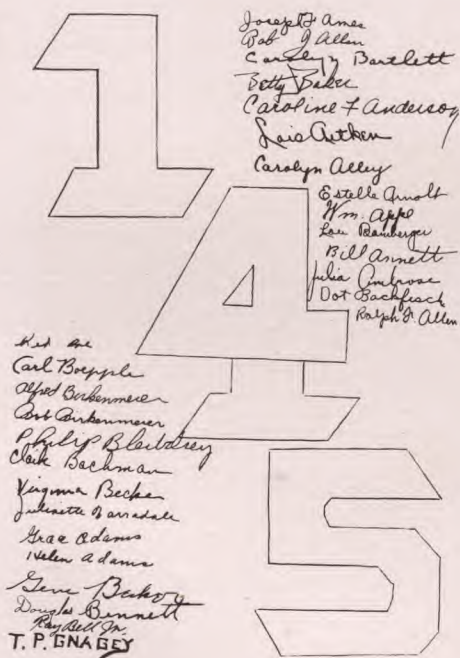 1
Joseph F Ames
Bob J Allen
Carolyn Bartlett
Betty Baker
Caroline F Anderson
Lois Aitken
Carolyn Alley
4
Estelle Arnolt
Wm. Appel
Lou Bamberger
Bill Annett
Julia Ambrose
Dot Bachfisch
Ralph F. Allen
Carl Boepple
Alfred Birkenmeier
Bob Birkenmeier
Philip
Bachman
Virginia Becker
Julinette
Grace Adams
Helen Adams
5
Gene
Douglas Bennett
Ray Bell Jr.
T. P. GNAGEY